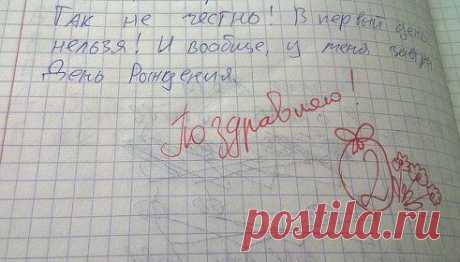 Так не честно! В первый день
нельзя! И вообще, у меня завтра
День Рождения.
Поздравляю!
2
postila.ru